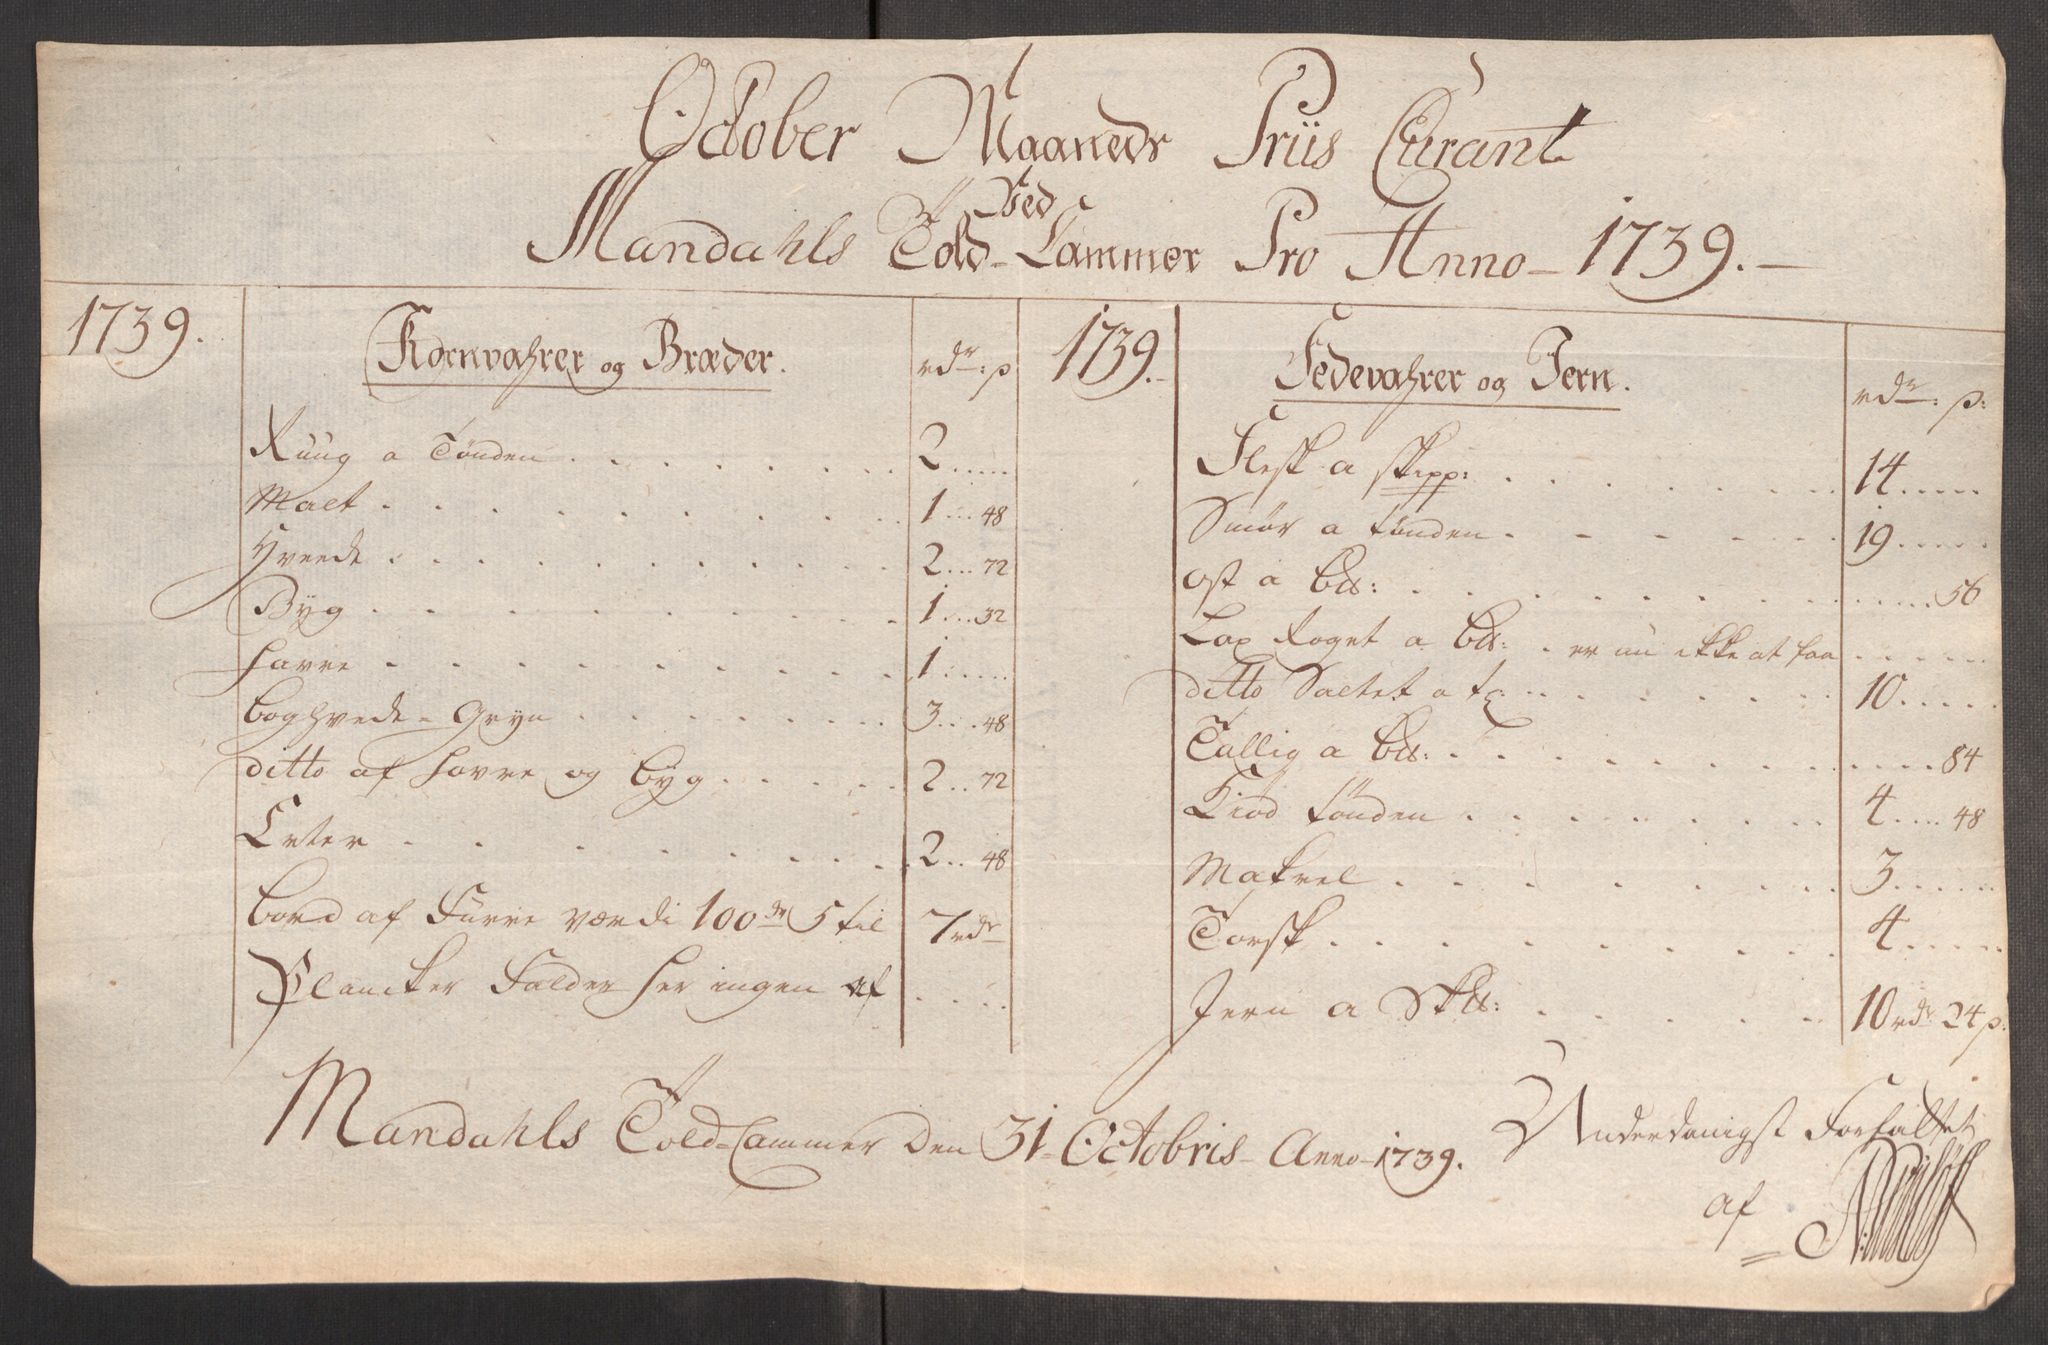 October Maaneds Priis Curant
Ved
Mandahls Told-Cammer Pro Anno - 1739. -
1739.
Kornvahrer og Bræder.
rdr: p
Ruug a Tønden . . . . . . . 2 . . . . .
Malt . . . . . . . . . . 1 . . . 48
Hveede . . . . . . . . . . 2 . . . 72
Byg . . . . . . . . . . 1 . . . 32
Havre . . . . . . . . . . 1 . . . . .
boghvede-Gryn . . . . . . . 3 . . . 48
ditto af Havre og byg . . . . . 2 . . 72
Erter . . . . . . . . . 2 . . 48
bord af Furre værdi 100de 5 til 7 rdr
Plancker Falder her ingen af . . . .
1739.
Fedevahrer og Jern.
rdr: p:
Flesk a skipp: . . . . . . . . 14 . . . . .
Smør a tønden . . . . . . 19 . . . . .
ost a bd: . . . . . . . . . . . . . . 56
Lax Røget a bd: . er nu ikke at faa . . . . .
ditto Saltet a td: . . . . . . . 10 . . . . .
Tallig a bd: . . . . . . . . . . . . 84
Kiød tønden . . . . . . . 4 . . . . 48
Makrel . . . . . . . . 3 . . . . . .
Torsk . . . . . . . . . 4 . . . . .
Jern a Skd: . . . . . . 10 rdr 24 p:
Mandahls Told-Cammer Den 31 - Octobris - Anno - 1739.
Underdanigst Forfattet
af